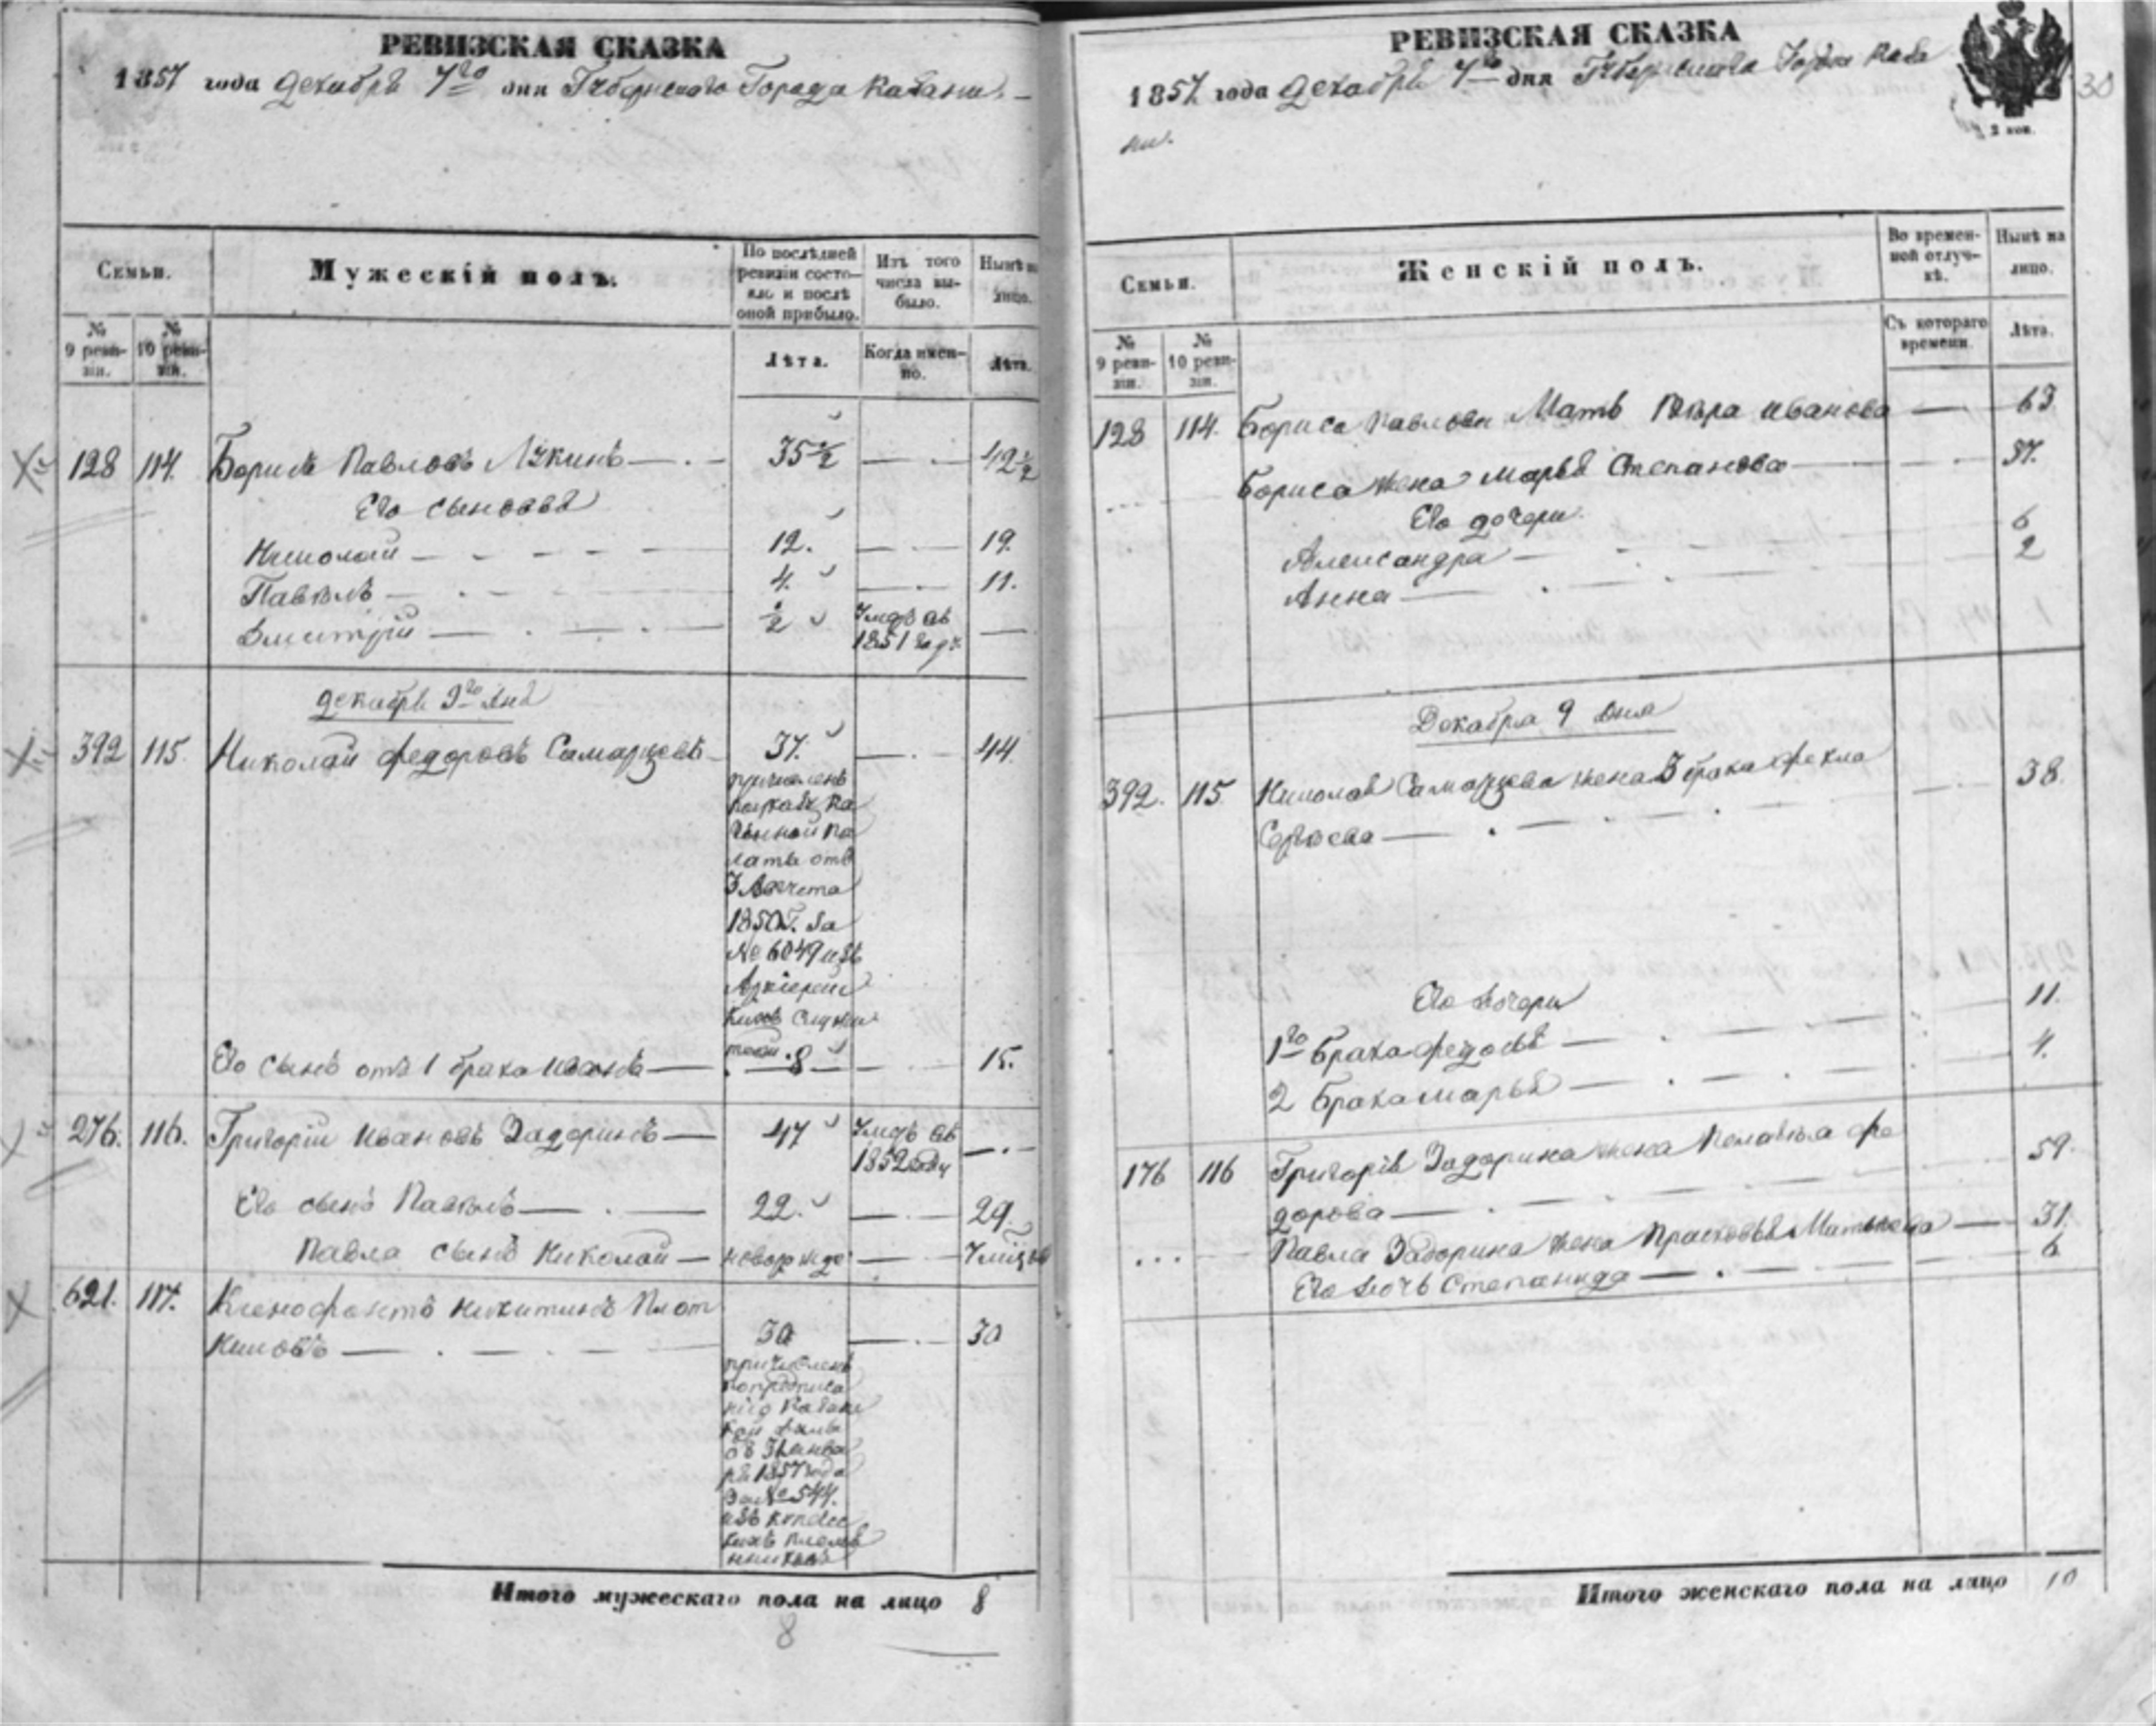 РЕВИЗСКАЯ СКАЗКА
1857 года Декабря 7го дня Губернскаго Города Казани.
Семьи.
Мужескій полъ.
По послѣдней ревизіи состо-
яло и послѣ
оной прибыло.
Изъ того
числа вы-
было.
Нынѣ на
лицо.
№
9 реви-
зіи.
№
10 реви-
зіи.
Лѣта.
Когда имен-
но.
Лѣта.
128 114. Борисъ Павловъ Лукинъ 35 1/2 42 1/2
Его сыновья
Николай 12. 19.
Павелъ 4. 11.
Дмитрій 1/2 Умеръ въ
1851 году
декабря 9го дня
392 115. Николай Федоровъ Самарцевъ 37. 44
причисленъ
по указу Ка
зенной Па
латы отъ
3 Августа
1850 г. за
№ 6049 изъ
Архіерей
кихъ служи
телей
Его сынъ отъ 1 брака Иванъ 8 15.
276. 116. Григорій Ивановъ Задоринъ 47 Умеръ въ
1852 году
Его сынъ Павелъ 22. 29.
Павла сынъ Николай новорожде
621. 117. Ксенофонтъ Никитинъ Плот
никовъ 30 30
причисленъ
по предписа
нію Казанс
кой
отъ 31 Янва
ря 1857 года
за № 544.
изъ
кихъ
Итого мужескаго пола на лицо 8
8
РЕВИЗСКАЯ СКАЗКА
1857 года Декабря 7го дня Губернскаго Города Каза
ни.
30
2 коп.
Семьи.
Женскій полъ.
Во времен-
ной отлуч-
кѣ.
Нынѣ на
лицо.
№
9 реви-
зіи.
№
10 реви-
зіи.
Съ котораго
времени.
Лѣта.
128 114. Бориса Павлова Мать Вѣра Иванова 63
Бориса жена Марья Степанова 37.
Его дочери
Александра 6
Анна 2
Декабря 9 дня
392. 115. Николая Самарцева жена 3 брака Фекла 38.
Сергѣева
Его дочери
1го Брака Федосья 11.
2 Брака Марья 4.
176 116 Григорія Задорина жена Пелагѣя Фе 59.
дорова
Павла Задорина жена Прасковья Матвѣева 31.
Его дочь Степанида 6
Итого женскаго пола на лицо 10